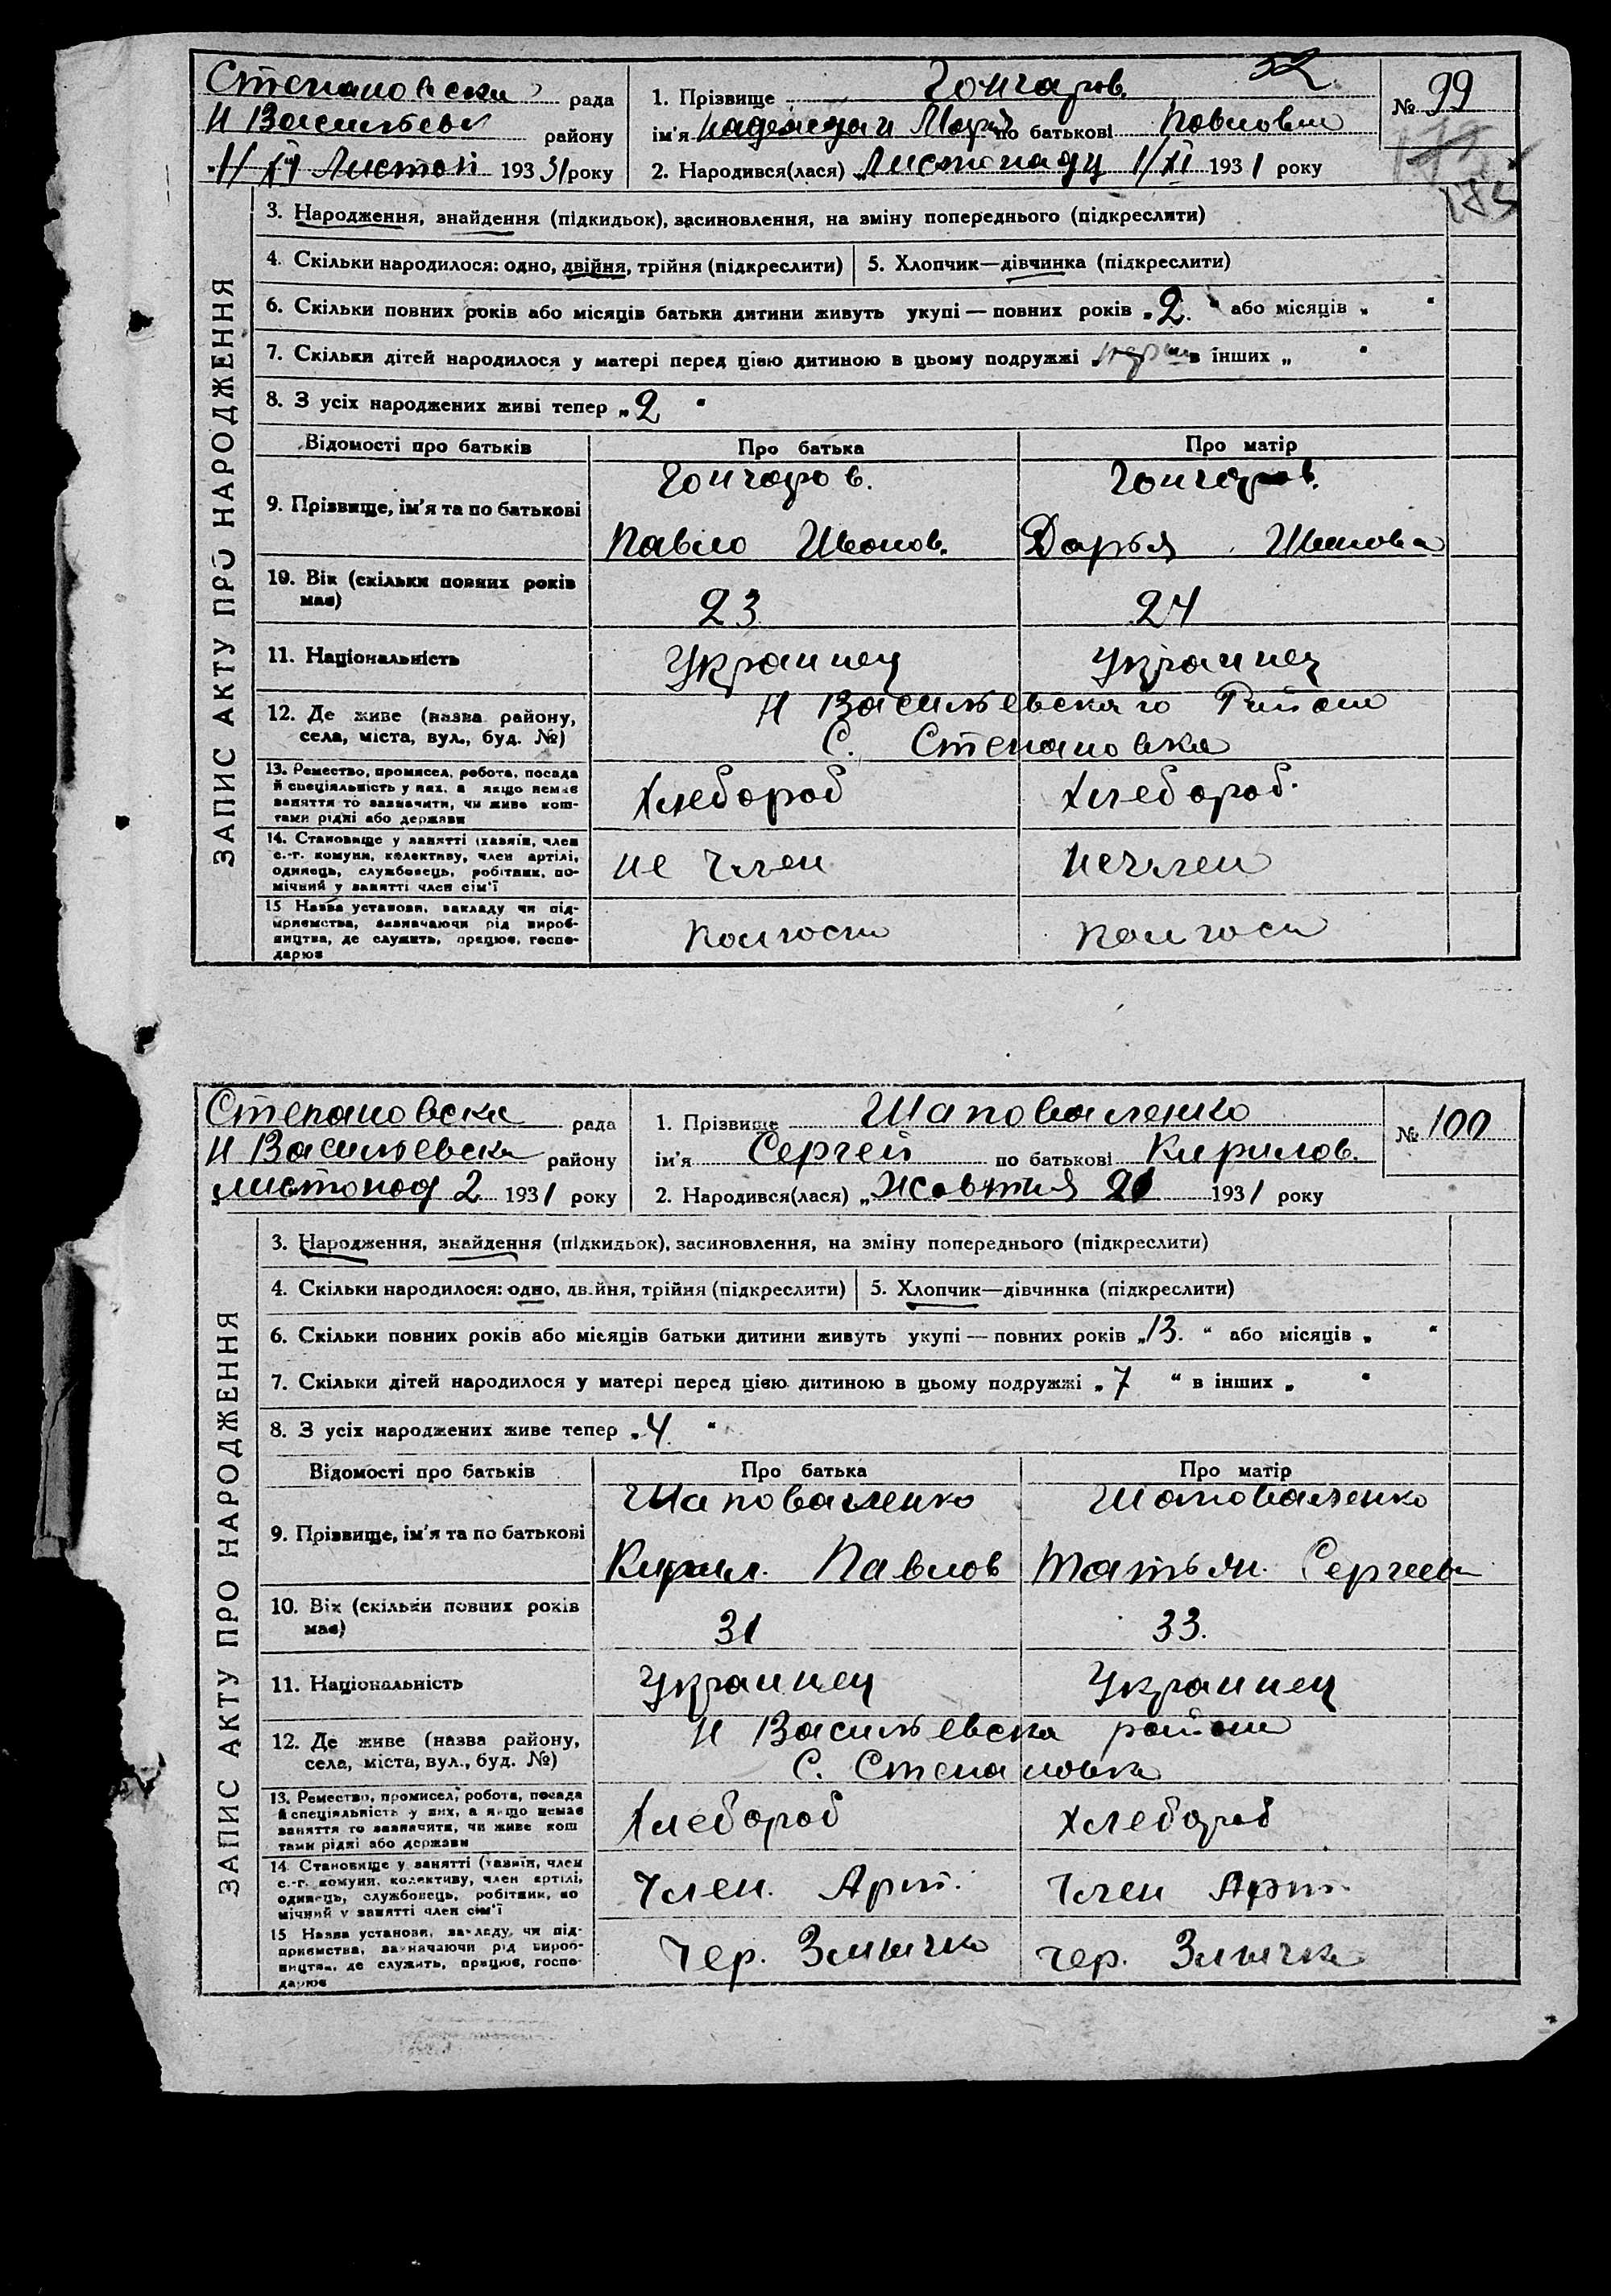 Степановска рада
Н Васильевск району
"1/XI Листоп 1931 року
1. Прізвище Гончаров.
32
ім'я Надежда и Мария по батькові Павловна
2. Народився(лася) „Листопаду 1/XI 1931 року
№ 99
175
ЗАПИС АКТУ ПРО НАРОДЖЕННЯ
3. Народження, знайдення (підкидьок), засиновлення, на зміну попереднього (підкреслити)
4. Скільки народилося: одно, двійня, трійня (підкреслити)
5. Хлопчик—дівчинка (підкреслити)
6. Скільки повних років або місяців батьки дитини живуть укупі — повних років „2." або місяців „ "
7. Скільки дітей народилося у матері перед цією дитиною в цьому подружжі в інших „ "
8. З усіх народжених живі тепер „2 "
Відомості про батьків
Про батька
Про матір
9. Прізвище, ім'я та по батькові
Гончаров.
Павло Иванов.
Гончаров.
Дарья Иванова
10. Вік (скільки повних років має)
23
24
11. Національність
Украинец
Украинец
12. Де живе (назва району, села, міста, вул., буд. №)
Н Васильевскаго Района
С. Степановка
13. Ремество, промисел, робота, посада й спеціяльність у них, а якщо немає заняття то зазначити, чи живе коштами рідні або держави
Хлебороб
Хлебороб.
14. Становище у занятті (хазяїн, член с.-г. комуни, колективу, член артілі, одинець, службовець, робітник, помічний у занятті член сім'ї
не член
нечлен
15 Назва установи, закладу чи підприємства, зазначаючи рід виробництва, де служить, працює, господарює
Степановска рада
Н Васильевска району
„листопад 2 1931 року
1. Прізвище Шаповаленко
ім'я Сергей по батькові Кирилов.
2. Народився(лася) „Жовтня 21 1931 року
№ 100
ЗАПИС АКТУ ПРО НАРОДЖЕННЯ
3. Народження, знайдення (підкидьок), засиновлення, на зміну попереднього (підкреслити)
4. Скільки народилося: одно, двійня, трійня (підкреслити)
5. Хлопчик—дівчинка (підкреслити)
6. Скільки повних років або місяців батьки дитини живуть укупі — повних років „13. " або місяців „ "
7. Скільки дітей народилося у матері перед цією дитиною в цьому подружжі „7 " в інших „ "
8. З усіх народжених живе тепер „4. "
Відомості про батьків
Про батька
Про матір
9. Прізвище, ім'я та по батькові
Шаповаленко
Кирил. Павлов
Шаповаленко
Татьян. Сергеевн
10. Вік (скільки повних років має)
31
33.
11. Національність
Украинец
Украинец
12. Де живе (назва району, села, міста, вул., буд. №)
Н Васильевска района
С. Степановка
13. Ремество, промисел, робота, посада й спеціяльність у них, а якщо немає заняття то зазначити, чи живе коштами рідні або держави
Хлебороб
Хлебороб
14. Становище у занятті (хазяїн, член с.-г. комуни, колективу, член артілі, одинець, службовець, робітник, помічний у занятті член сім'ї
Член. Арт.
Член Арт.
15 Назва установи, закладу, чи підприємства, зазначаючи рід виробництва, де служить, працює, господарює
Чер. Змычка
Чер. Змычка